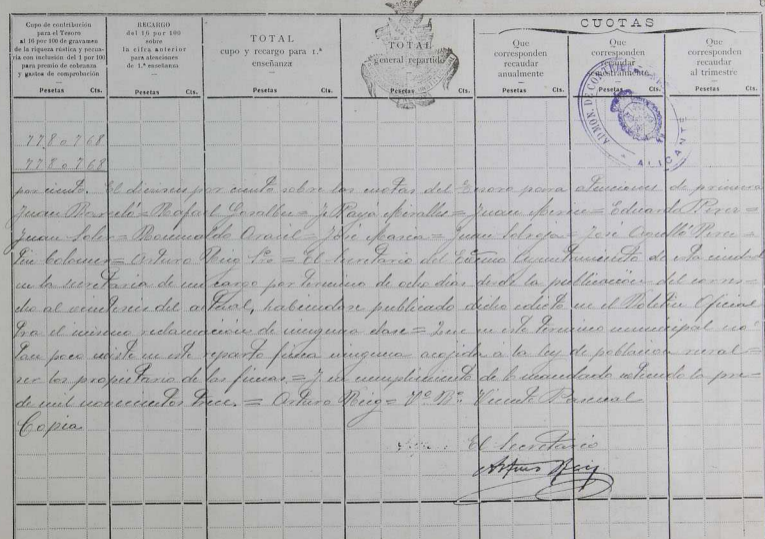 CUOTAS
Cupo de contribución
para el Tesoro
al 16 por 100 de gravamen
de la riqueza rústica y pecua-
ria con inclusión del 1 por 100
para premio de cobranza
y gastos de comprobación
Pesetas Cts.
RECARGO
del 16 por 100
sobre
la cifra anterior
para atenciones
de 1.ª enseñanza
Pesetas Cts.
TOTAL
cupo y recargo para 1.ª
enseñanza
Pesetas Cts.
TOTAL
general repartido
Pesetas Cts.
Que
corresponden
recaudar
anualmente
Pesetas Cts.
Que
corresponden
recaudar
Pesetas Cts.
Que
corresponden
recaudar
al trimestre
Pesetas Cts.
ADMON. DE
ALICANTE
778 0 768
778 0 768
por ciento. El dieciseis por ciento sobre las cuotas del Tesoro para atenciones de primera
Juan Barceló = Rafael = J. Payá Miralles = Juan = Eduardo Perez =
Juan Soler = Romualdo Aracil = José María = Juan = José Perez =
= Arturo Reig Srio = El Secretario del Excmo Ayuntamiento de esta ciudad
en la secretaria de mi cargo por termino de ocho dias desde la publicacion del
cho al veintiseis del actual, habiendose publicado dicho edicto en el Boletin Oficial
tra el mismo reclamacion de ninguna clase = Que en este termino municipal no
tan poco existe en este reparto finca ninguna acogida a la ley de poblacion rural =
ser los propietario de las fincas = Y en cumplimiento de lo mandado extiendo la pre-
de mil novecientos trece. = Arturo Reig = Vº Bº Vicente Pascual
Copia
El Secretario
Arturo Reig